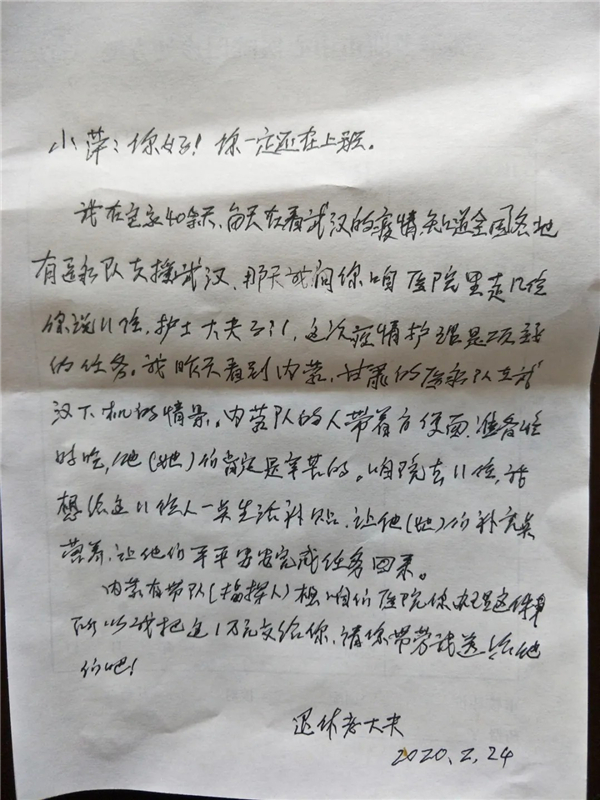 小萍:你好!你一定还在上班。
我在宅家40余天,每天在看武汉的疫情知道全国各地
有医疗队支援武汉,那天我问你咱医院里走几位
你说11位,护士大夫3:1,这次疫情护理是项重要
的任务。我昨天看到内蒙,甘肃的医疗队在武
汉下机的情景。内蒙队的人带着方便面,准备忙
时吃,他(她)们肯定是辛苦的。咱院去11位,我
想给这11位人一点生活补贴,让他(她)们补充点
营养,让他们平平安安完成任务回来。
内蒙有带队(指挥人)想咱们医院你
所以我把这1万元交给你,请你带劳我送给他
们吧!
退休老大夫
2020.2.24